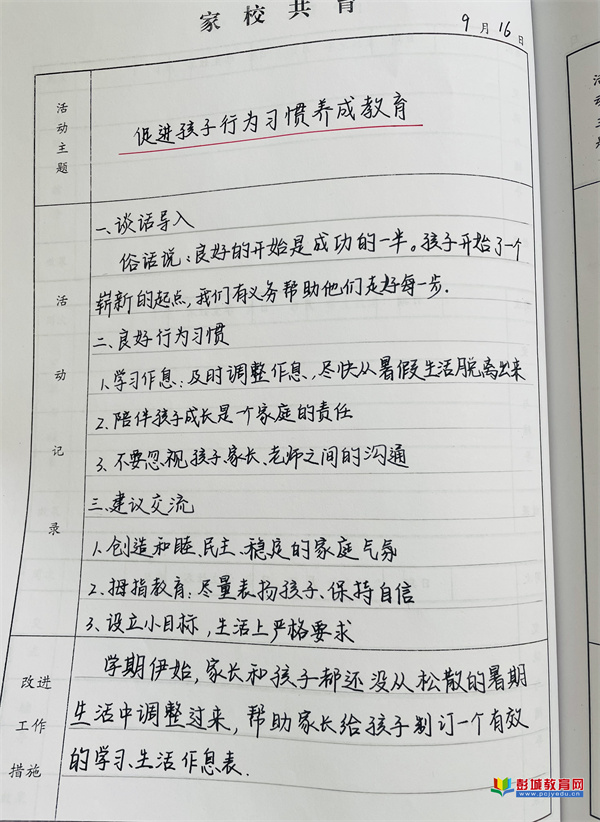 家校共育
9月16日
活动主题
促进孩子行为习惯养成教育
活动记录
一、谈话导入
俗话说:良好的开始是成功的一半。孩子开始了一个
崭新的起点,我们有义务帮助他们走好每一步.
二、良好行为习惯
1.学习作息:及时调整作息,尽快从暑假生活脱离出来
2.陪伴孩子成长是一个家庭的责任
3.不要忽视孩子、家长、老师之间的沟通
三、建议交流
1.创造和睦、民主、稳定的家庭气氛
2.拇指教育:尽量表扬孩子、保持自信
3.设立小目标,生活上严格要求
改进
工作
措施
学期伊始,家长和孩子都还没从松散的暑期
生活中调整过来,帮助家长给孩子制订一个有效
的学习、生活作息表.
彭城教育网
www.pcjyedu.cn